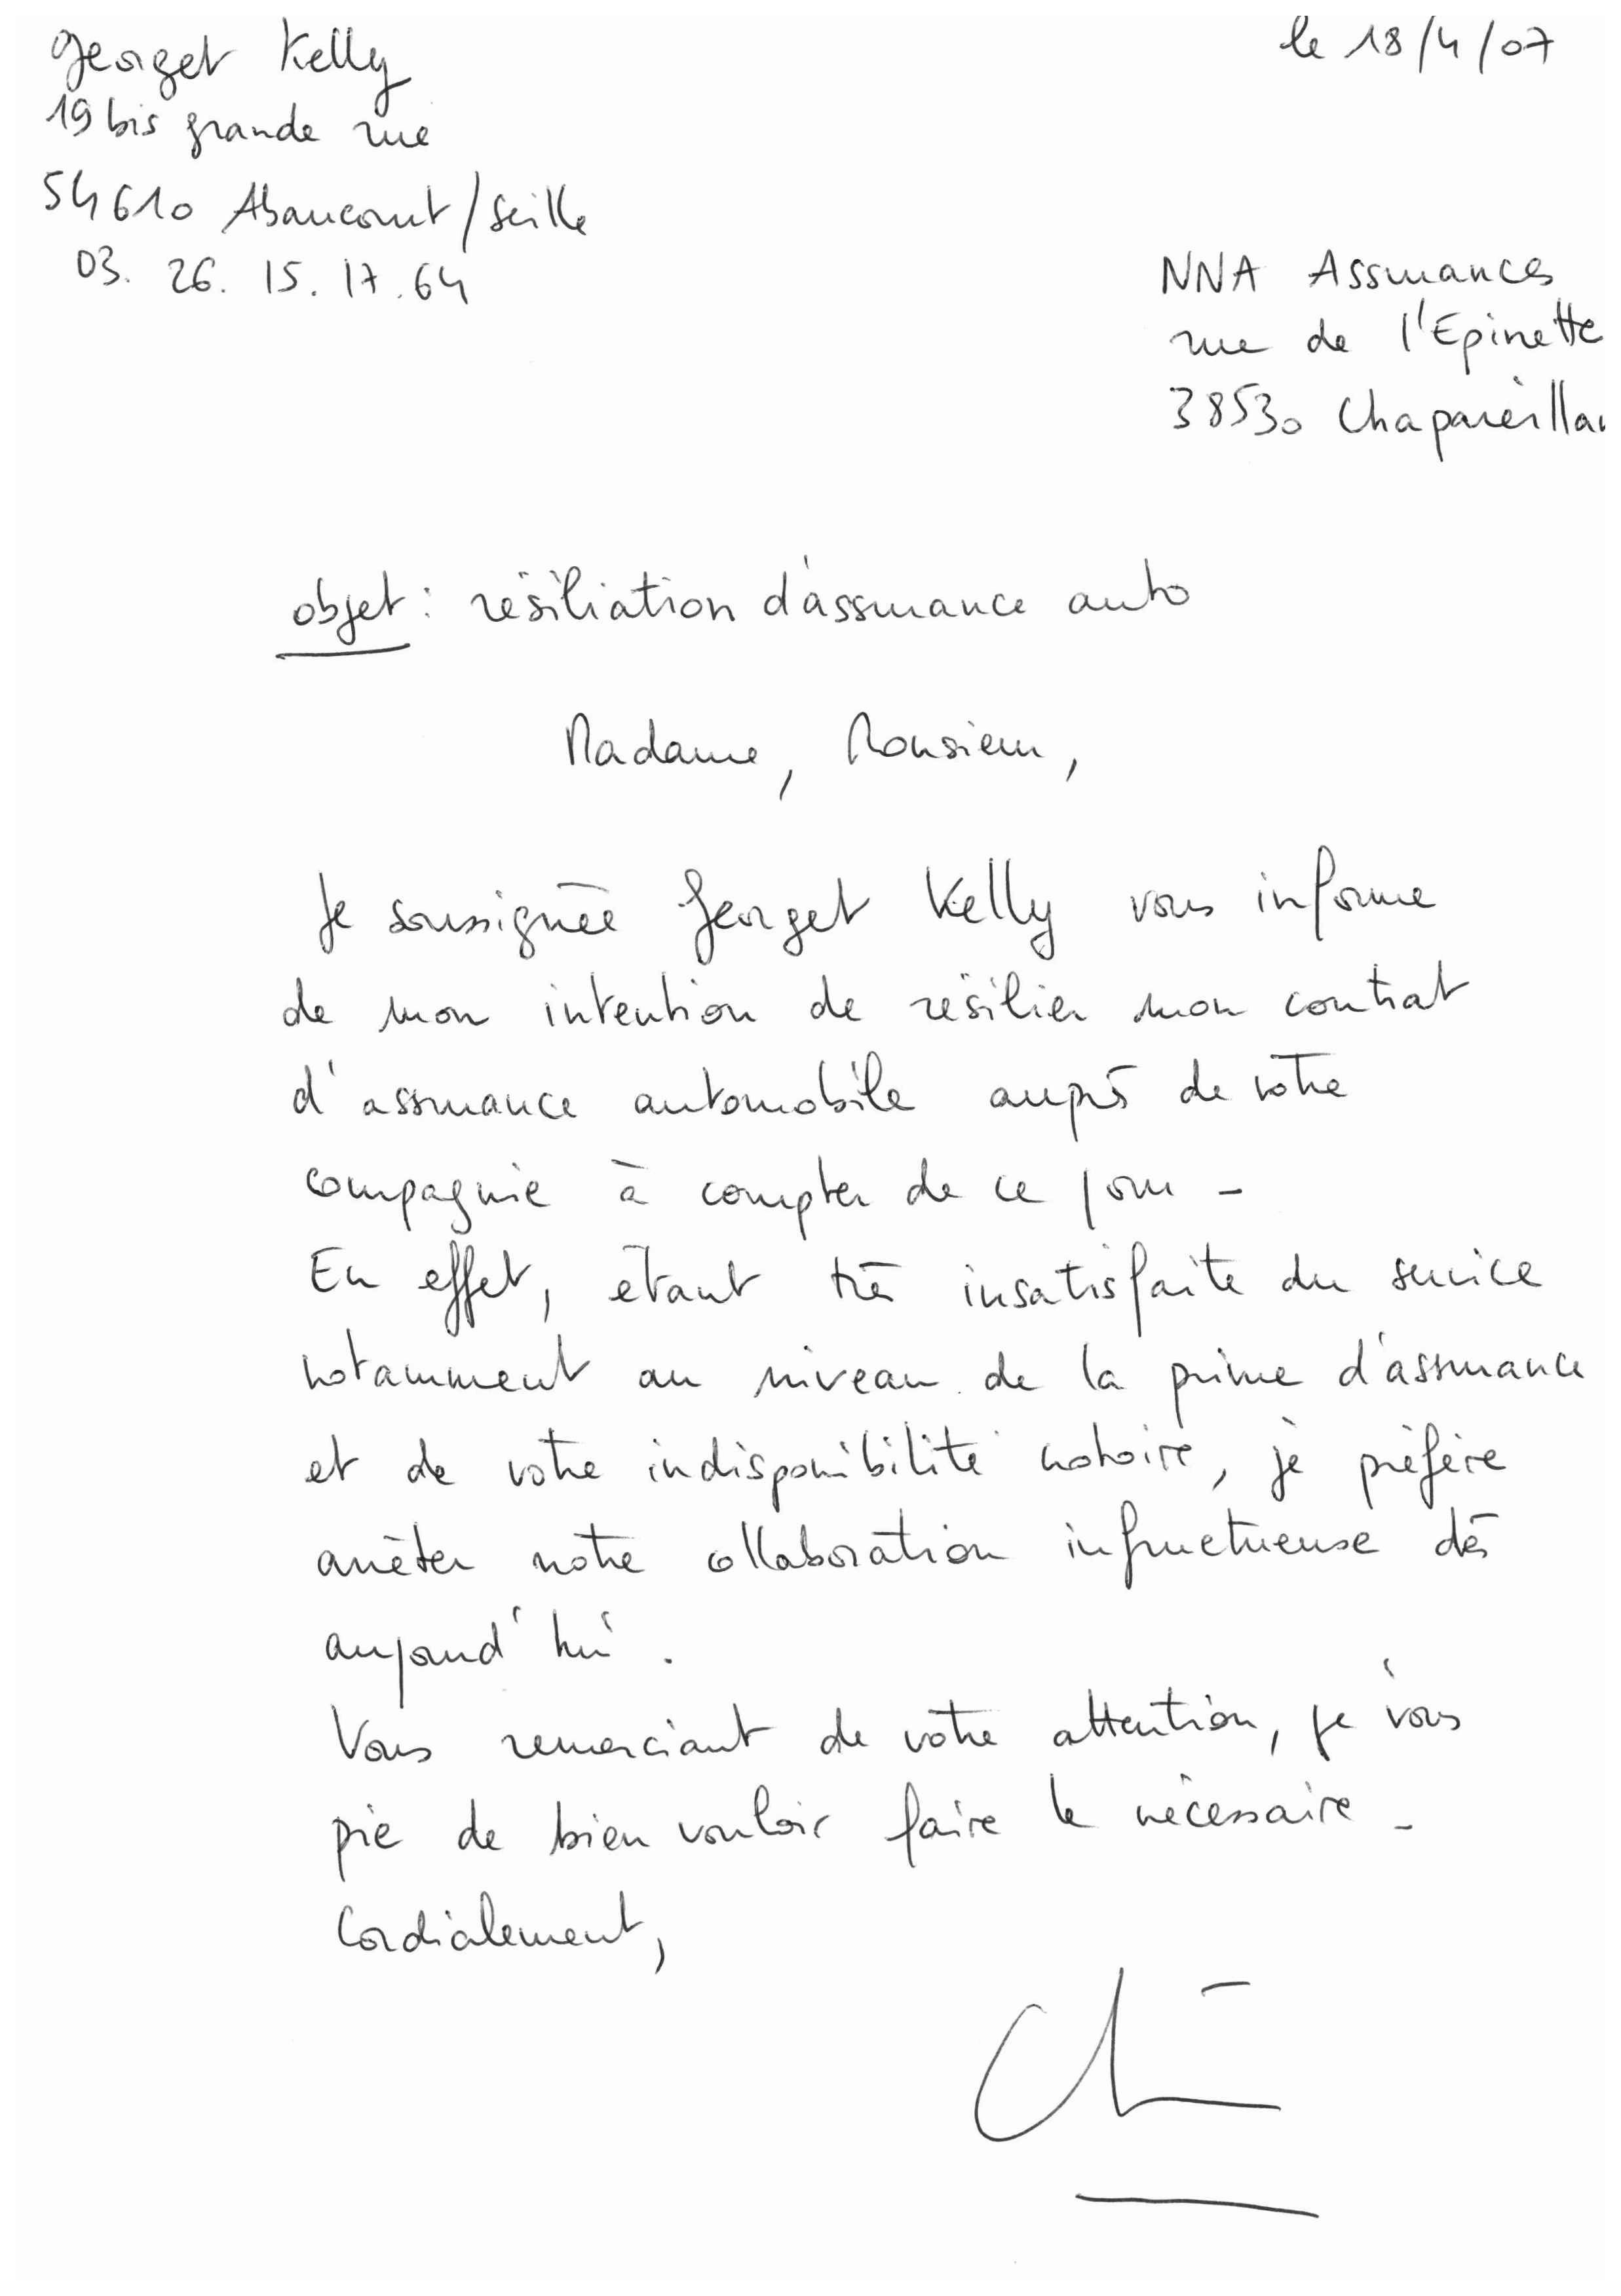 Georget Kelly
le 18/4/07
19 bis grande rue
54610 Abaucourt/Seille
03. 26. 15. 17. 64
NNA Assurances
rue de l'Epinette
38530 Chapareillan
objet : résiliation d'assurance auto
Madame, Monsieur,
Je soussignée Georget Kelly vous informe
de mon intention de résilier mon contrat
d'assurance automobile auprès de votre
compagnie à compter de ce jour -
En effet, étant très insatisfaite du service
notamment au niveau de la prime d'assurance
et de votre indisponibilité notoire, je préfère
arrêter notre collaboration infructueuse dès
aujourd'hui.
Vous remerciant de votre attention, je vous
prie de bien vouloir faire le nécessaire -
Cordialement,